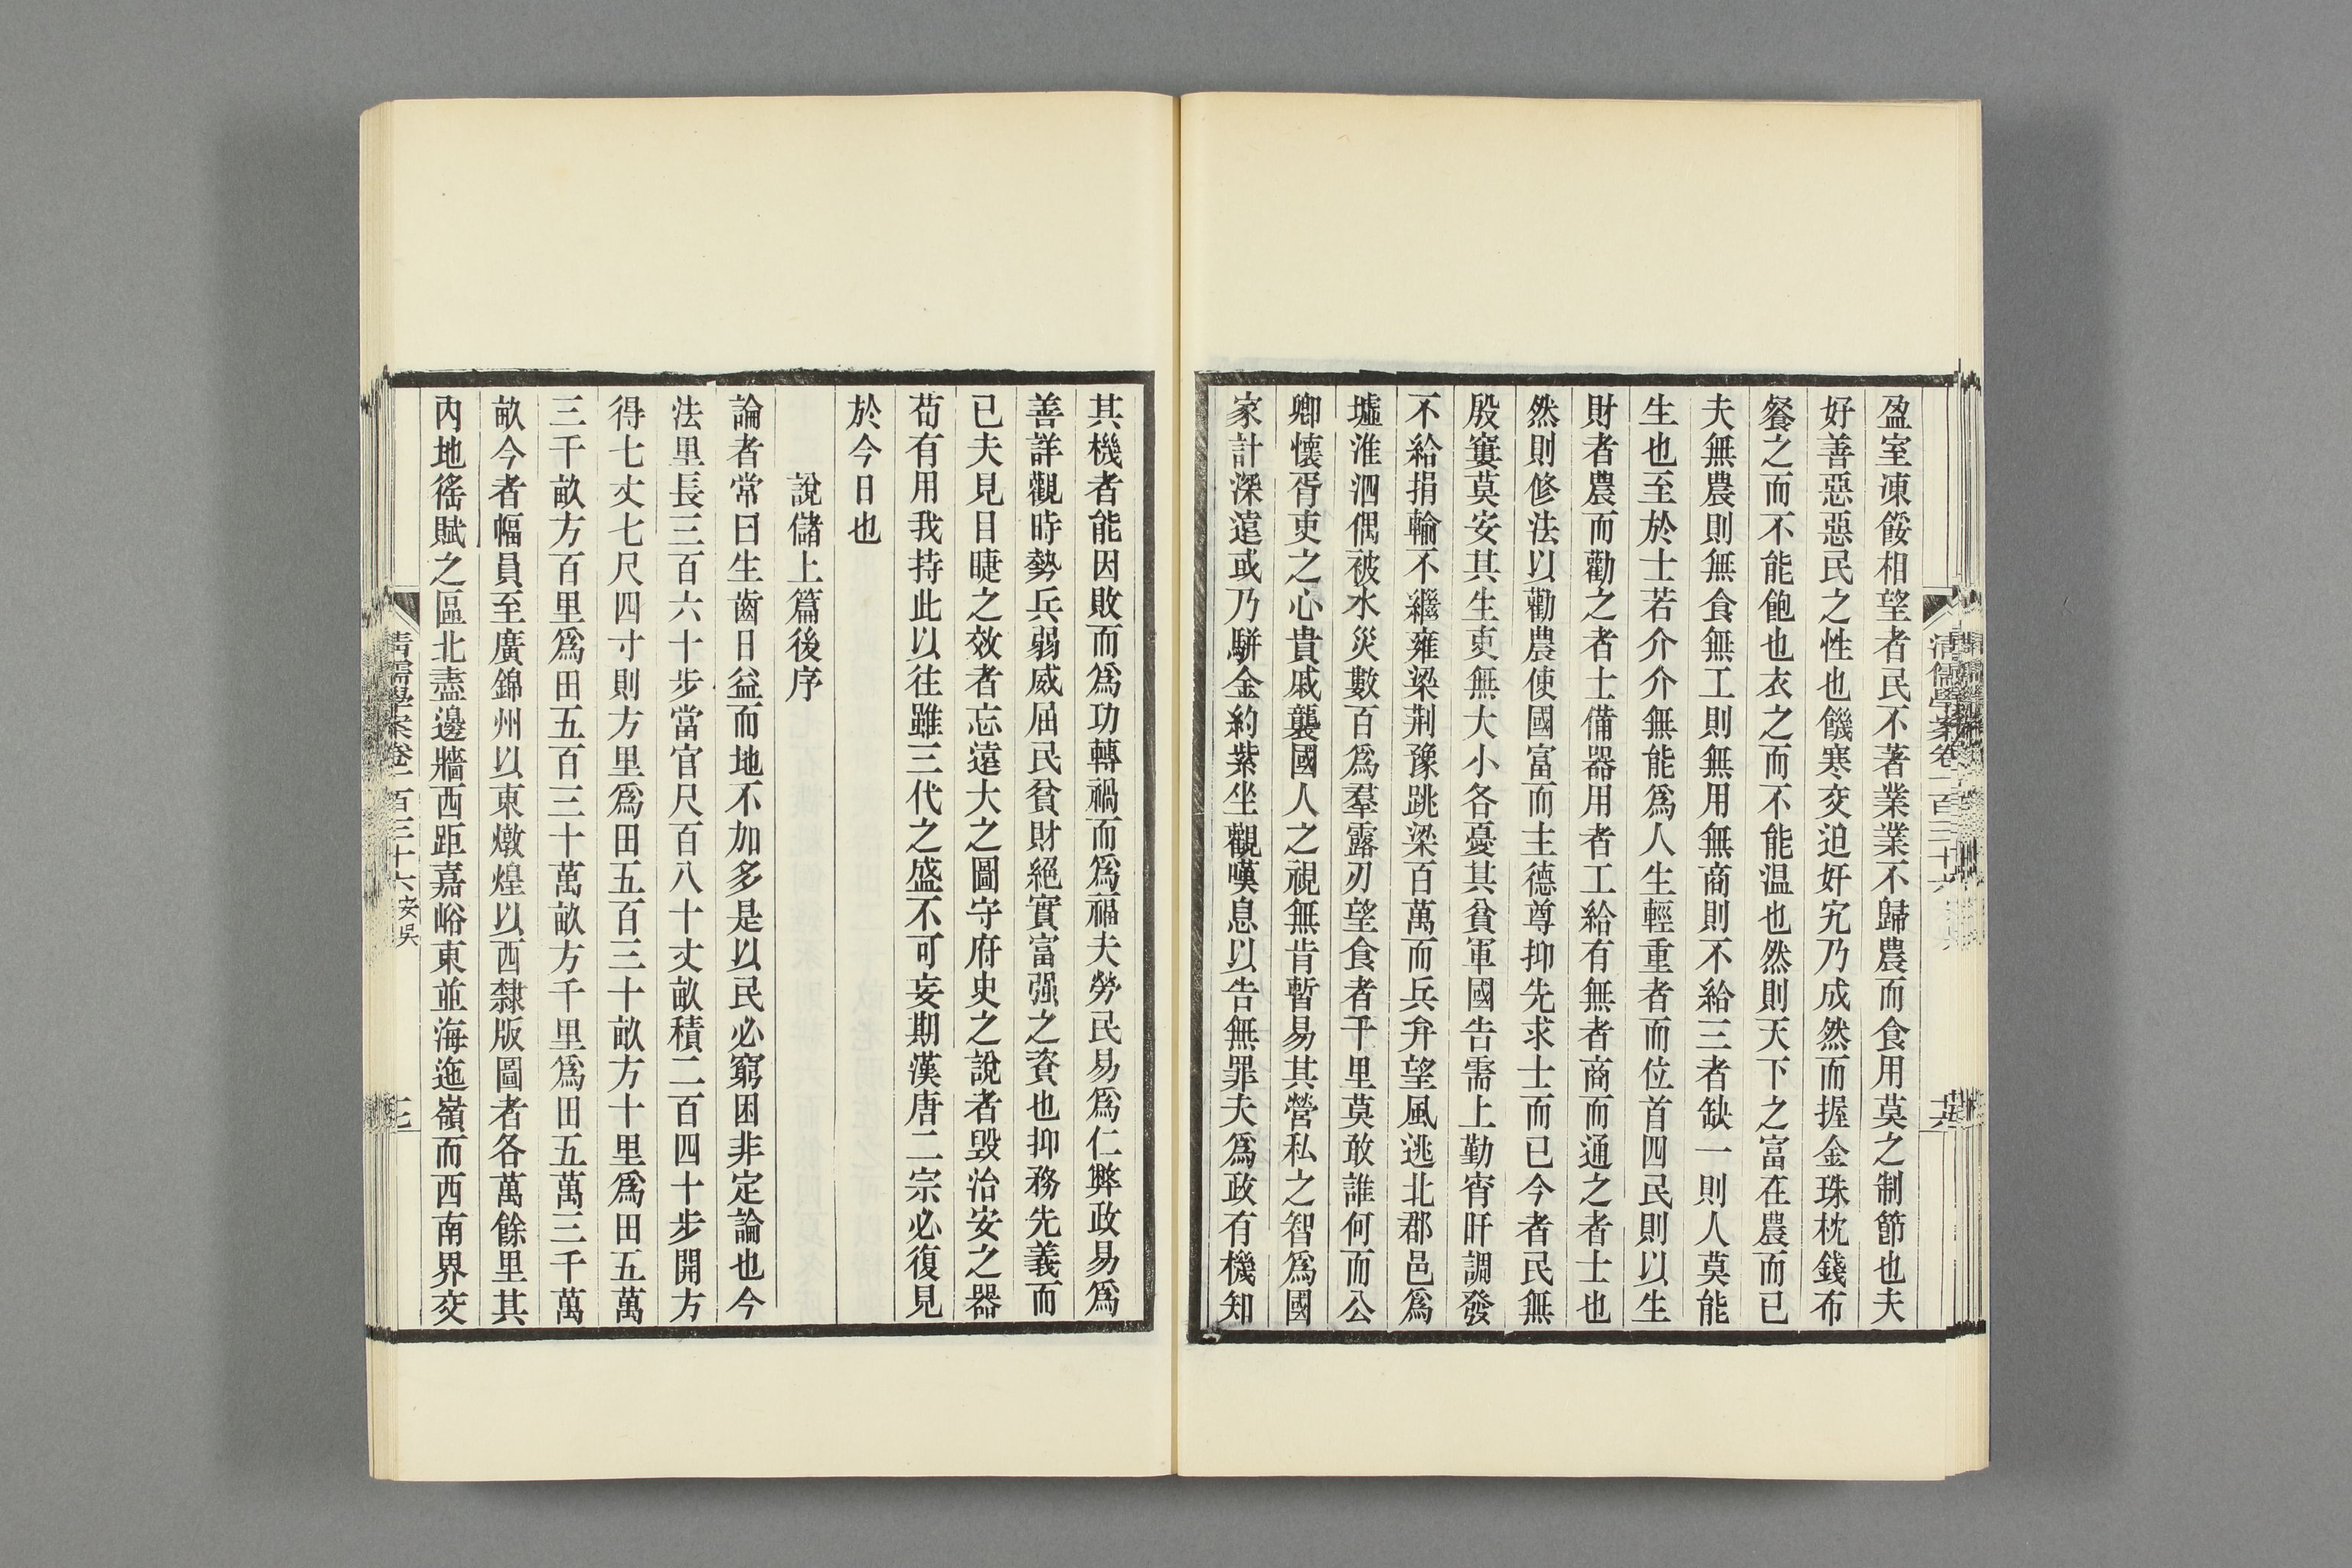 盈室凍餒相望者民不著業業不歸農而食用莫之制節也夫
好善惡惡民之性也饑寒交迫奸宄乃成然而握金珠枕錢布
餐之而不能飽也衣之而不能温也然則天下之富在農而已
夫無農則無食無工則無用無商則不給三者缺一則人莫能
生也至於士若介介無能爲人生輕重者而位首四民則以生
財者農而勸之者士備器用者工給有無者商而通之者士也
然則修法以勸農使國富而主德尊抑先求士而已今者民無
殷窶莫安其生吏無大小各憂其貧軍國告需上勤宵旰調發
不給捐輸不繼雍梁荆豫跳梁百萬而兵弁望風逃北郡邑爲
墟淮泗偶被水災數百爲羣露刃望食者千里莫敢誰何而公
卿懷胥吏之心貴戚襲國人之視無肯暫易其營私之智爲國
家計深遠或乃駢金約紫坐觀嘆息以告無罪夫爲政有機知
清儒學案卷一百三十六
其機者能因敗而爲功轉禍而爲福夫勞民易爲仁弊政易爲
善詳觀時勢兵弱威屈民貧財絕實富强之資也抑務先義而
已夫見目睫之效者忘遠大之圖守府史之說者毀治安之器
苟有用我持此以往雖三代之盛不可妄期漢唐二宗必復見
於今日也
說儲上篇後序
論者常曰生齒日益而地不加多是以民必窮困非定論也今
法里長三百六十步當官尺百八十丈畝積二百四十步開方
得七丈七尺四寸則方里爲田五百三十畝方十里爲田五萬
三千畝方百里爲田五百三十萬畝方千里爲田五萬三千萬
畝今者幅員至廣錦州以東燉煌以西隸版圖者各萬餘里其
內地徭賦之區北盡邊牆西距嘉峪東並海迤嶺而西南界交
清儒學案卷一百三十六 安吳